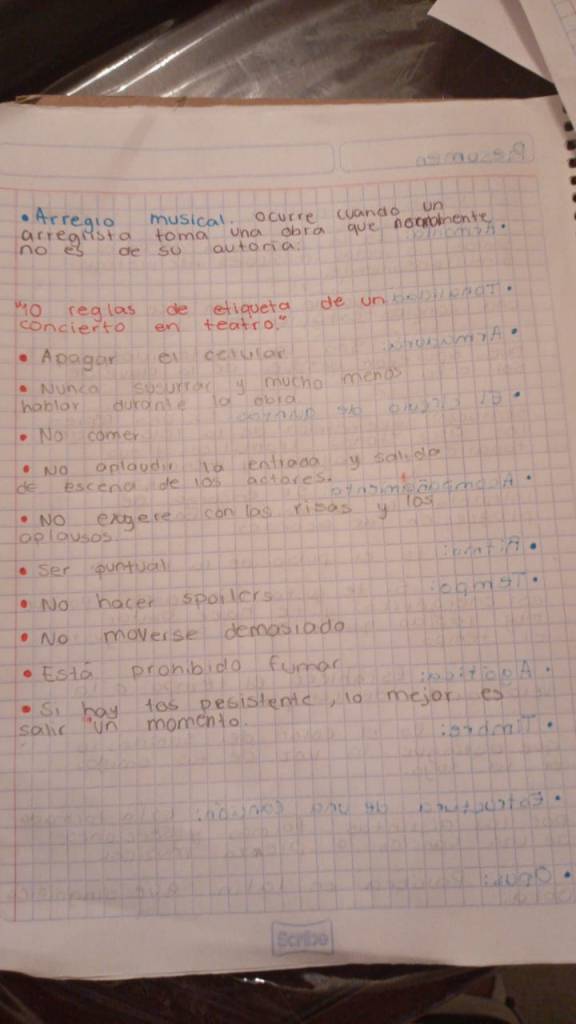 • Arregio musical. ocurre cuando un
arreglista toma una obra que normalmente
no es de su autoria.
"10 reglas de etiqueta de un
concierto en teatro."
• Apagar el celular
• Nunca susurrar y mucho menos
hablar durante la obra
• No comer
• No aplaudir la entrada y salida
de escena de los actores.
• No exgere con las risas y los
aplausos
• Ser puntual
• No hacer spoilers
• No moverse demasiado
• Está prohibido fumar
• Si hay tos pesistente, lo mejor es
salir un momento.
Scribe